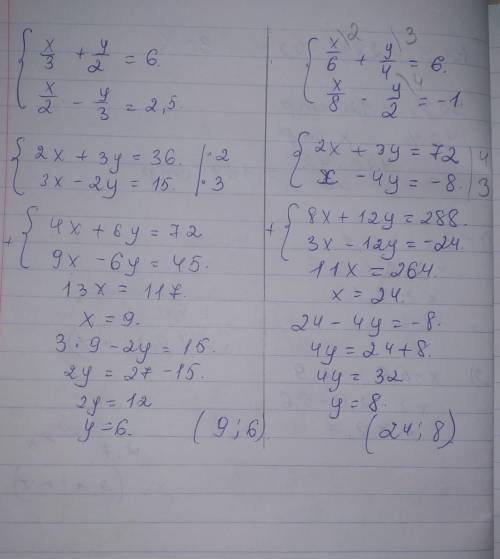 x/3 + y/2 = 6.
x/2 - y/3 = 2,5.
2x + 3y = 36. | · 2
3x - 2y = 15. | · 3
+ 4x + 6y = 72
9x - 6y = 45.
13x = 117.
x = 9.
3 · 9 - 2y = 15.
2y = 27 - 15.
2y = 12
y = 6. (9; 6).
x/6 \2 + y/4 \3 = 6.
x/8 - y/2 \4 = -1.
2x + 3y = 72 | 4
x - 4y = -8. | 3
+ 8x + 12y = 288.
3x - 12y = -24.
11x = 264.
x = 24.
24 - 4y = -8.
4y = 24 + 8.
4y = 32
y = 8.
(24; 8)